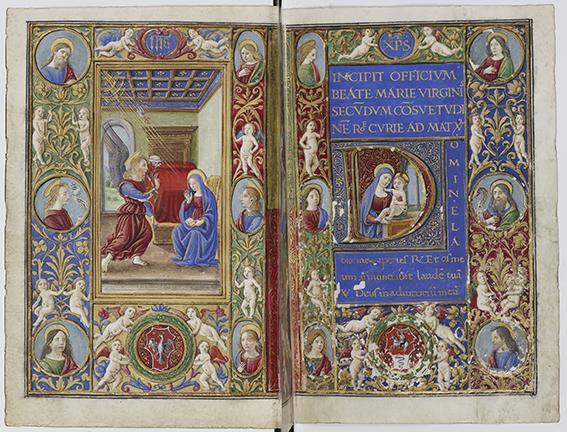 IHS
XPS
INCIPIT OFFICIVM
BEATE MARIE VIRGINI
SECVDVM COSVETVDI
NE RE CVRIE AD MAT
D
OMINE LA
bia mea aperies R. Et os me
um annuntiabit laudē tuā
V Deus in adiutoriū meū